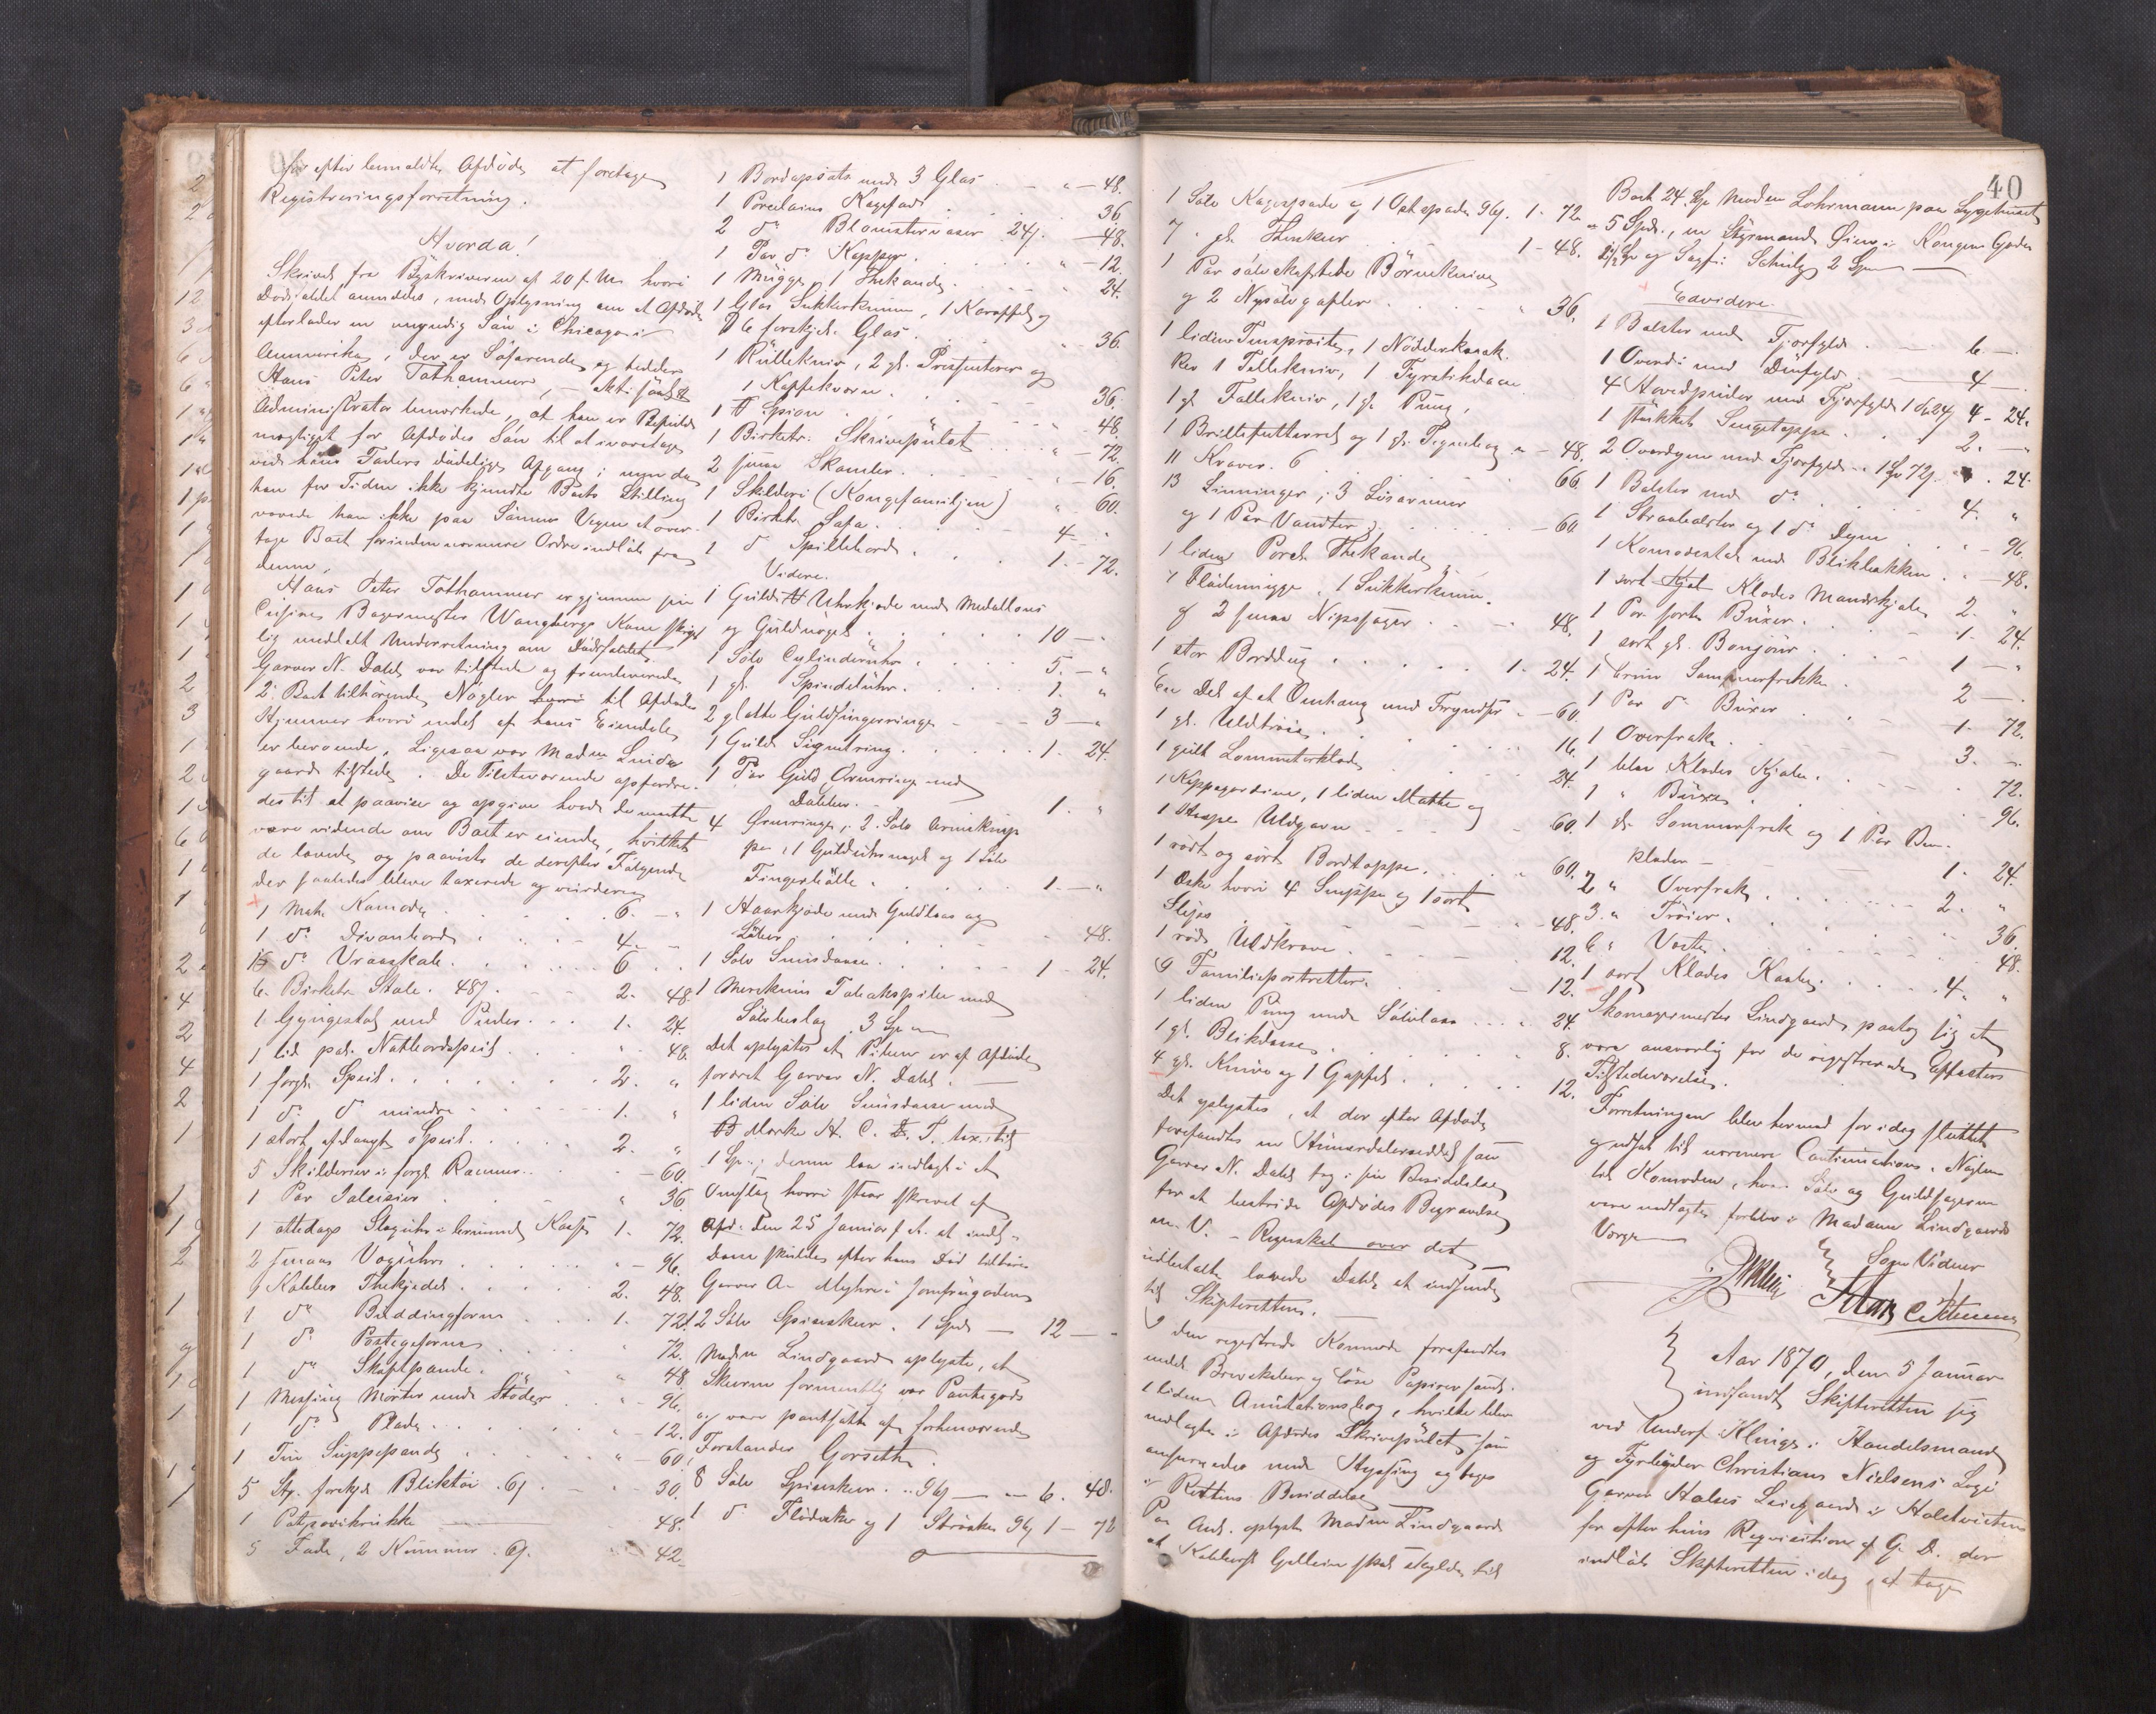 for efter bemeldte Afdøde at foretage
Registreringsforretning.
Hvorda!
Skrivels fra Byskriveren af 20 f. M. hvori
Dødsfaldet anmeldes, med Oplysning om at Afdøde
efterlader en umyndig Søn i Chicago i
Ammerika, der er Søfarende og hedder
Hans Peter Tothammer,
Administrator bemærkede, at han er Befuld-
mægtiget for Afdødes Søn til at ivaretage
ved hans Faders dødelige Afgang; men da
han for Tiden ikke kjendte Boets Stilling
vovede han ikke paa Sønnens Vegne at over-
tage Boet forinden nærmere Ordre indløb fra
denne.
Hans Peter Tothammer er gjennem sin
Cusine Bagermester Wangbergs Kone skrift
lig meddelt Underretning om Dødsfaldet.
Garver N. Dahl var tilstede og fremleverede
2 Boet tilhørende Nøgler til Afdødes
Gjemmer hvori endel af hans Eiendele
er beroende. Ligesaa var Madm Linde
gaard tilstede. De Tilstedeværende opfordre-
des til at paavise og opgive hvad de maatte
være vidende om Boet er eiende, hvilket
de lovede og paaviste de derefter Følgende
der saaledes bleve taxerede og vurderede
1 Mah. Komode . . . 6. — "
1 do Divanbord . . . 4. —
1 do Vraaskab . . . 6 . .
6. Birketr. Stole . 48 . . 2. 48
1 Gyngestol med Puder . . 1. 24.
1 lid pol. Natbordspeil . . " 48.
1 forgt. Speil . . . 2. "
1 do do mindre . . . 1. "
1 stort aflangt Speil . . . 2. "
5 Skilderier i forgt. Rammer . . — 60.
1 Par Jalousier . . . " 36
1 ottedags Slaguhr i brunmalt Kasse 1. 72.
2 smaa Væguhre . . . " — 96.
1 Kobber Thekjedel . . . 2. 48.
1 do Buddingform . . . 1. 72
1 do Posteiform . . . 72.
1 do Skaftpande . . . " 48.
1 Messing Morter med Støder . . " 96.
1 do Plade . . . " — 12.
1 Tin Suppepande . . . " — 60
5 Stk. forskjel. Bliktøi . 6 . . 30.
1 Potpourikrukke — 48.
5 Fade, 2 Kummer . 6 . " 42
1 Bordopsats med 3 Glas . . " — 48.
1 Porcelains Kagefad . . . 36
2 do Blomstervaser 24 . — 48.
1 Par do Kopper . . . " — 12.
1 Mugge, 1 Thekande . . . " 24.
1 Glas Sukkerkumme, 1 Karaffel og
6 forskjel. Glas . . . " 36.
1 Rullekniv, 2 gl. Presenterer og
1 Kaffekværn . . . 36.
1 Spion . . . " — 48
1 Birketr. Skrivepulpet . . . " — 72.
2 smaa Skamler . . . " — 16.
1 Skilderi (Kongefamiljen) . " 60.
1 Birketr. Sofa . . . 4 — "
1 do Spillebord . . . 1. — 72.
Videre.
1 Guld Uhrkjæde med Medallons
og Guldnøgel . . . 10 — "
1 Sølv Cylinderuhr . . . 5. — "
1 gl. Spindeluhr . . . 1. "
2 glatte Guldfingerringe . . . 3 — "
1 Guld Signetring . . . 1. 24.
1 Par Guld Ørenringe med
Dobber . . . 1. "
4 Ørenringe, 2 Sølv Ærmeknap
per, 1 Guldeuhrnøgel og 1 Sølv
Fingerbølle . . . 1. — "
1 Haarkjæde med Guldlaas og
Løber . . . — 48.
1 Sølv Snusdaase . . . 1 — 24.
1 Merskums Tobakspibe med
Sølvbeslag . 3 Sp
Det oplystes at Piben er af Afdøde
foræret Garver N. Dahl. —
1 liden Sølv Snusdaase med
Mærke H. C. T. tax. til
1 Sp.; denne laa indlagt i et
Omslag hvori staar skrevet af
Afd. den 25 Januar f. A. at indl.
Daase skulde efter hans Død tilhøre
Garver A. Myhre i Jomfrugaden
12 Sølv Spiseskeer . 1 Spd — 12 —
Madm Lindgaard oplyste, at
Skeerne formentlig var Pantegods
og vare pantsatte af forhenværende
Forstander Gorseth.
8 Sølv Spiseskeer . . 96 — — 6. 48.
1 do Flødeske og 1 Strøske 96 1 — 72
40
1 Sølv Kagespade og 1 Ostspade 96. 1. 72
7 . gl. Theskeer . . . 1 — 48.
1 Par sølvskaftede Børneknive
og 2 Nysølvgafler . . . " 36.
1 liden Tinsprøite, 1 Nøddeknæk-
ker 1 Tællekniv, 1 Fyrstikdaase
1 gl. Follekniv, 1 gl. Pung,
1 Brillefutteral og 1 gl. Tegnebog " — 48.
11 Kraver . 6 . . . 66
13 Linninger, 3 Løsærmer
og 1 Par Vandter . . . — 60
1 liden Porcl. Thekande,
1 Flødemugge, 1 Sukkerkumme
og 2 smaa Nipssager . . . — 48.
1 stor Borddug . . . 1. 24.
En Del af et Omhæng med Fryndser " — 60.
1 gl. Uldtrøie . . . 16.
1 hvidt Lommetørklæde . . . 24.
1 Koppegardine, 1 liden Matte og
1 Hespe Uldgarn . . . 60.
1 rødt og sort Bordteppe . . . 60.
1 Æske hvori 4 og 1 sort
Sløjfe . . . — 48.
1 rød Uldkrave . . . 12.
9 Familieportretter . . . — 12.
1 liden Pung med Sølvlaas . . . " 24.
1 gl. Blikdaase . . . " 8.
4 gl. Knive og 1 Gaffel . . . 12.
Det oplystes, at der efter Afdøde
forefandtes en Himmerdalersseddel som
Garver N. Dahl tog i sin Besiddelse
for at bestride Afdødes Begravelse
m. V. – Regnskab over det
udbetalte lovede Dahl at indsende
til Skifteretten. —
I den registrede Komode forefandtes
endel Brevskaber og løse Papirer samt
1 liden Annotationsbog, hvilke bleve
nedlagte i Afdødes Skrivepulpet, som
med Hypsing og toges
i Rettens Besiddelse
Paa Anl. oplyste Madm Lindgaard
at skal skylde til
Boet 24 Sp. Madm Lohrmann paa Sygehuset
5 Spd., en Styrmand Øien i Kongens Gade
2 1/2 Sp og Sagf. Schulz 2 Spd —
Edvidere
1 Bolster med Fjærfyld . . — 6. —
1 Overd. med Dunfyld . — 4 —
4 Hovedpuder med Fjærfyld 1 Sp 24 4 - 24.
1 stukket Sengeteppe . . . 2. —
2 Overdyner med Fjærfyld . . 1 Sp 72 . 24.
1 Bolster med do . . . 4. "
1 Straabolster og 1 do Dyne . . . — 96.
1 Komodestol med Blikbækken . " — 48.
1 sort Klædes Mandskjole 2. "
1 Par sorte Buxer . . . 1. 24.
1 sort gl. Bonjour . . . 1 — "
1 brun Sommerfrakke . . 2 —
1 Par do Buxer . . . 1. 72.
1 Overfrakke . . . 3. —
1 blaa Klædes Kjole . . . 72.
1 " Buxe . . . 96.
1 gl. Sommerfrak og 1 Par Ben-
klæder — 1. 24.
2 " Overfrak . . . 2. "
3 " Trøier . . . 36.
6 " Veste . . . 48.
1 sort Klædes Kaabe . . . 4. "
Skomagermester Lindgaard paatog sig at
være ansvarlig for de registrerede Effecters
Tilstedeværelse.
Forretningen blev hermed for idag sluttet
og udsat til nærmere Continuation. Nøglen
til Komoden, hvori Sølv og Guldsagerne
vare nedlagte forblev i Madame Lindgaards
Værge
Som Vidner
Klingz
Aar 1870, den 5 Januar
indfandt Skifteretten sig
ved Underf. Klingz i Handelsmand
og Fyrbøder Christian Nielsens Logi
Garver Halsis Leiegaard i Holstveiten
for efter hins Reqvisition af G. D. der
indløb Skifteretten idag, at tage